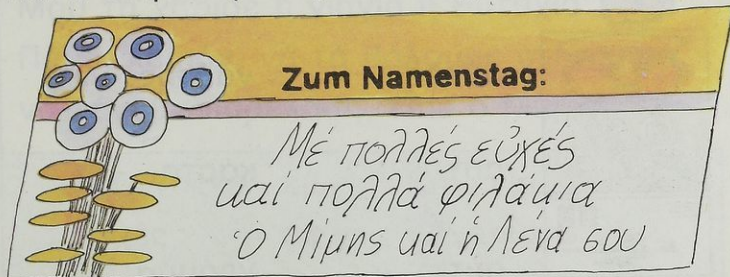 Zum Namenstag:
Μέ πολλές εὐχές
καί πολλά φιλάκια
Ὁ Μίμης καί ἡ Λένα σου